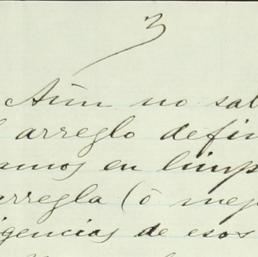 3
Aún no sal
arreglo defin
amos en limp
arregla (ó mej
igencias de esos